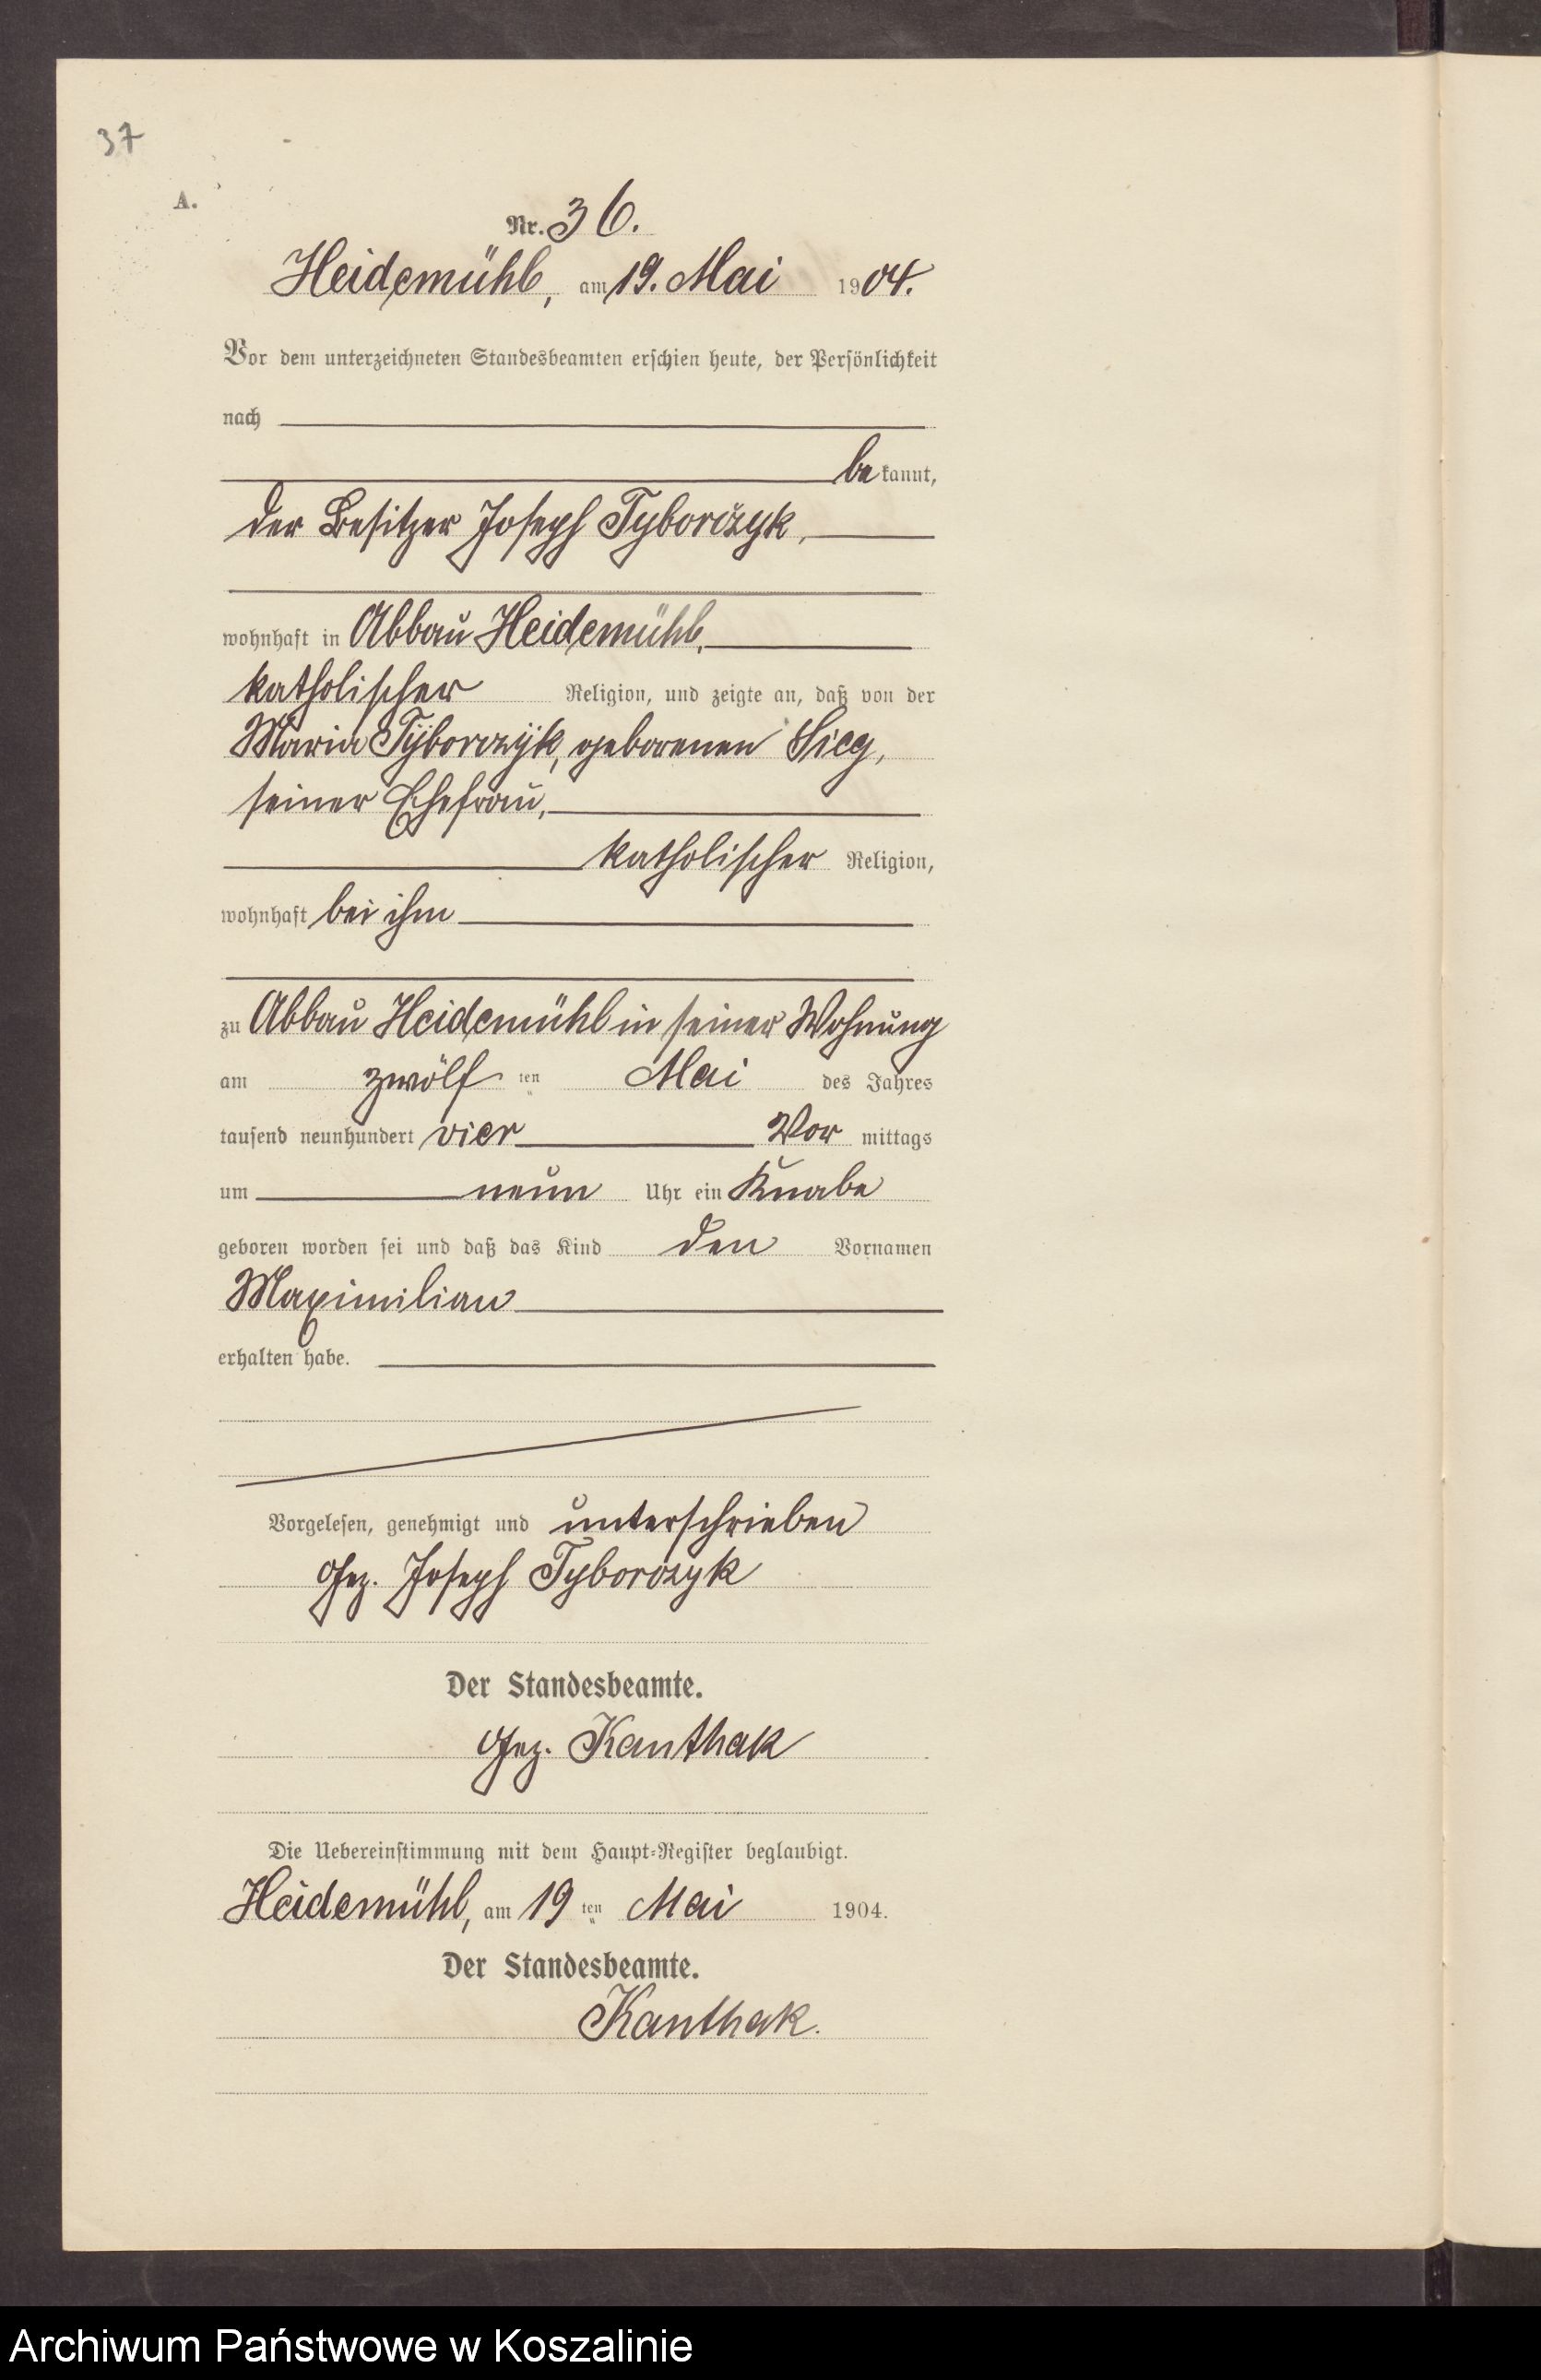 37
A.
Nr. 36.
Heidemühl, am 19. Mai 1904.
Vor dem unterzeichneten Standesbeamten erschien heute, der Persönlichkeit
nach
bekannt,
der Besitzer Joseph Tyborczyk,
wohnhaft in Abbau Heidemühl,
katholischer Religion, und zeigte an, daß von der
Maria Tyborczyk, geborenen Sieg,
seiner Ehefrau,
katholischer Religion,
wohnhaft bei ihm
zu Abbau Heidemühl in seiner Wohnung
am zwölf ten Mai des Jahres
tausend neunhundert vier Vor mittags
um neun Uhr ein Knabe
geboren worden sei und daß das Kind den Vornamen
Maximilian
erhalten habe.
Vorgelesen, genehmigt und unterschrieben
Gez. Joseph Tyborczyk
Der Standesbeamte.
Gez. Kanthak
Die Uebereinstimmung mit dem Haupt-Register beglaubigt.
Heidemühl, am 19 ten Mai 1904.
Der Standesbeamte.
Kanthak.
Archiwum Państwowe w Koszalinie